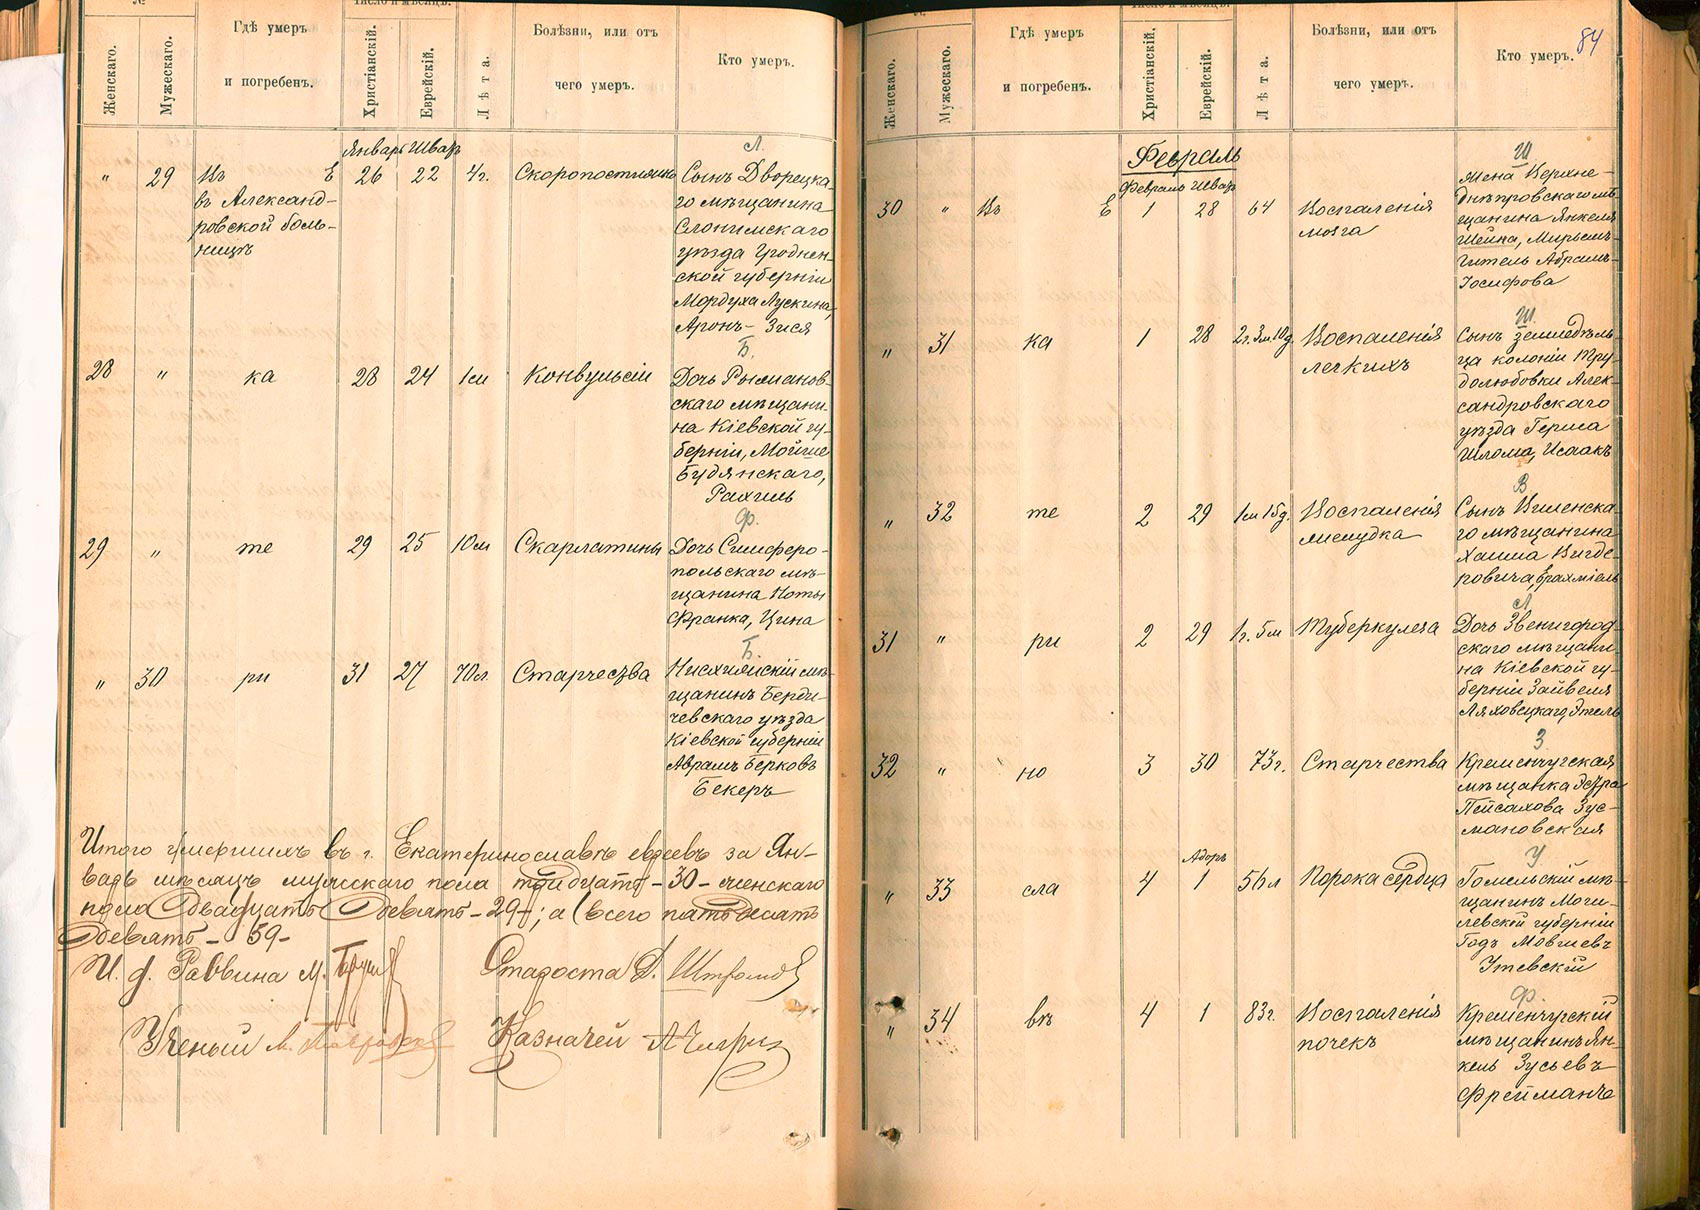 №
Число и мѣсяцъ.
Женскаго.
Мужескаго.
Гдѣ умеръ
и погребенъ.
Христіанскій.
Еврейскій.
Лѣта.
Болѣзни, или отъ
чего умеръ.
Кто умеръ.
Январь Шватъ
Л.
„ 29 Въ Е 26 22 4г. Скоропостижно Сынъ Дворецка-
въ Александ- го мѣщанина
ровской боль- Слонимскаго
ницѣ уѣзда Гроднен-
ской губерніи
Мордуха Лускина,
Аронъ-Зися
Б.
28 „ ка 28 24 1м Конвульсіи Дочь Рыжанов-
скаго мѣщани-
на Кіевской гу-
берніи, Мойше
Будянскаго,
Рахиль
Ф.
29 „ те 29 25 10м Скарлатины Дочь Симферо-
польскаго мѣ-
щанина Ноты
Франка, Цина
Б.
„ 30 ри 31 27 70л. Старчества мѣ-
щанинъ Берди-
чевскаго уѣзда
Кіевской губерніи
Аврамъ Берковъ
Бекеръ
Итого умершихъ въ г. Екатеринославѣ евреевъ за Ян-
варь мѣсяцъ мужскаго пола тридцать - 30 - женскаго
пола двадцать девять - 29 -; а всего пятьдесятъ
девять - 59 -
И. д. Раввина М. Староста Д.
Ученый Казначей
№
Число и мѣсяцъ.
84
Женскаго.
Мужескаго.
Гдѣ умеръ
и погребенъ.
Христіанскій.
Еврейскій.
Лѣта.
Болѣзни, или отъ
чего умеръ.
Кто умеръ.
Февраль
Февраль Шватъ
Ш.
30 „ Въ Е 1 28 64 Воспаленія Жена Верхне-
мозга днѣпровскаго мѣ-
щанина Янкеля
Шейна, Мирьамъ-
Гитель Абрамъ-
Іосифова
Ш.
„ 31 ка 1 28 2г. 3м. 10д. Воспаленія Сынъ земледѣль-
легкихъ ца колоніи Тру-
долюбовки Алек-
сандровскаго
уѣзда Герша
Шлома, Исаакъ
В
„ 32 те 2 29 1м 15д. Воспаленія Сынъ Виленска-
желудка го мѣщанина
Хаима Вигдо-
ровича, Ерахміель
Л
31 „ ри 2 29 1г. 5м Туберкулеза Дочь Звенигород-
скаго мѣщани-
на Кіевской гу-
берніи Зайвеля
Ляховецкаго, Этель
З.
32 „ но 3 30 73г. Старчества Кременчугская
мѣщанка
Пейсахова Зус-
мановская
Адоръ
У.
„ 33 сла 4 1 56л Порока сердца Гомельскій мѣ-
щанинъ Моги-
левской губерніи
Годъ Мовшевъ
Утевскій
Ф.
„ 34 вѣ 4 1 83г. Воспаленія Кременчугскій
почекъ мѣщанинъ Ян-
кель Зусьевъ
Фрейманъ